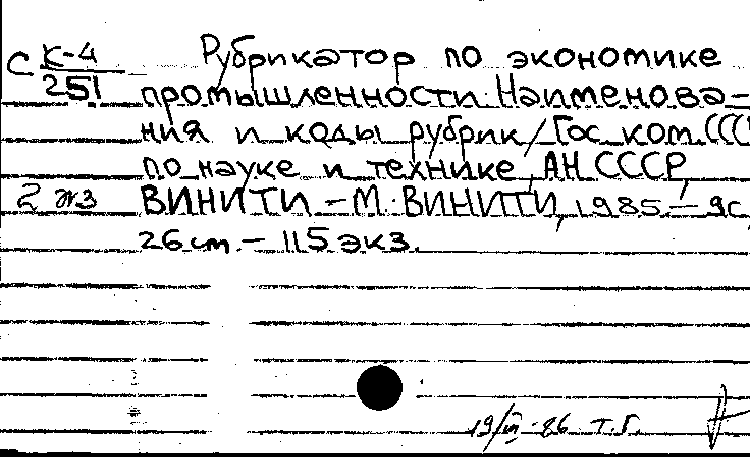 С К-4
251
Рубрикатор по экономике
промышленности. Наименова-
ния и коды рубрик/Гос. ком. СССР
по науке и технике, АН СССР,
2 экз ВИНИТИ. – М.: ВИНИТИ, 1985. – 9с,
26 см. – 115 экз.
19/III-86 Т.Г.